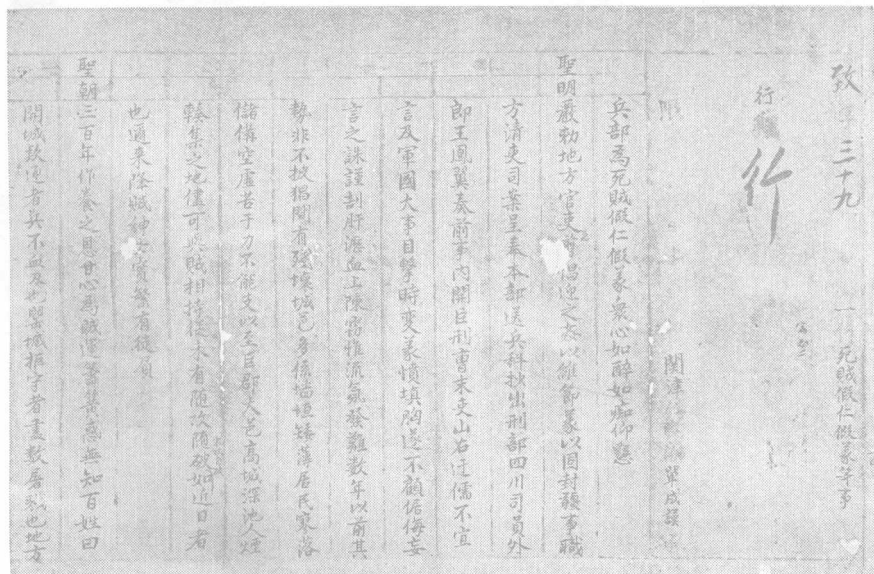 致 三十九 一 死賊假仁假義等事
行 行
關津 單成
兵部為死賊假仁假義衆心如醉如痴仰懇
聖明嚴勅地方官吏 倡迎之 以維節義以固封疆事職
方清吏司案呈奉本部送兵科抄出刑部四川司員外
郎王鳳翼奏前事內開臣刑曹末吏山右迂儒不宜
言及軍國大事目擊時變義憤填胸遂不顧 侮妄
言之誅謹剖肝瀝血上陳竊惟流氛發難數年以前其
勢非不披猖間有殘壞城邑多係墻垣矮薄居民寥落
儲備空虛苦于力不能支以至巨郡大邑高城深池人煙
輳集之地儘可與賊相持從未有隨攻隨破如近日者
也邇來降賊紳士實繁有徒負
聖朝三百年作養之恩甘心為賊運籌簧惑無知百姓曰
開城款迎者兵不血刃也嬰城拒守者盡數屠戮也地方